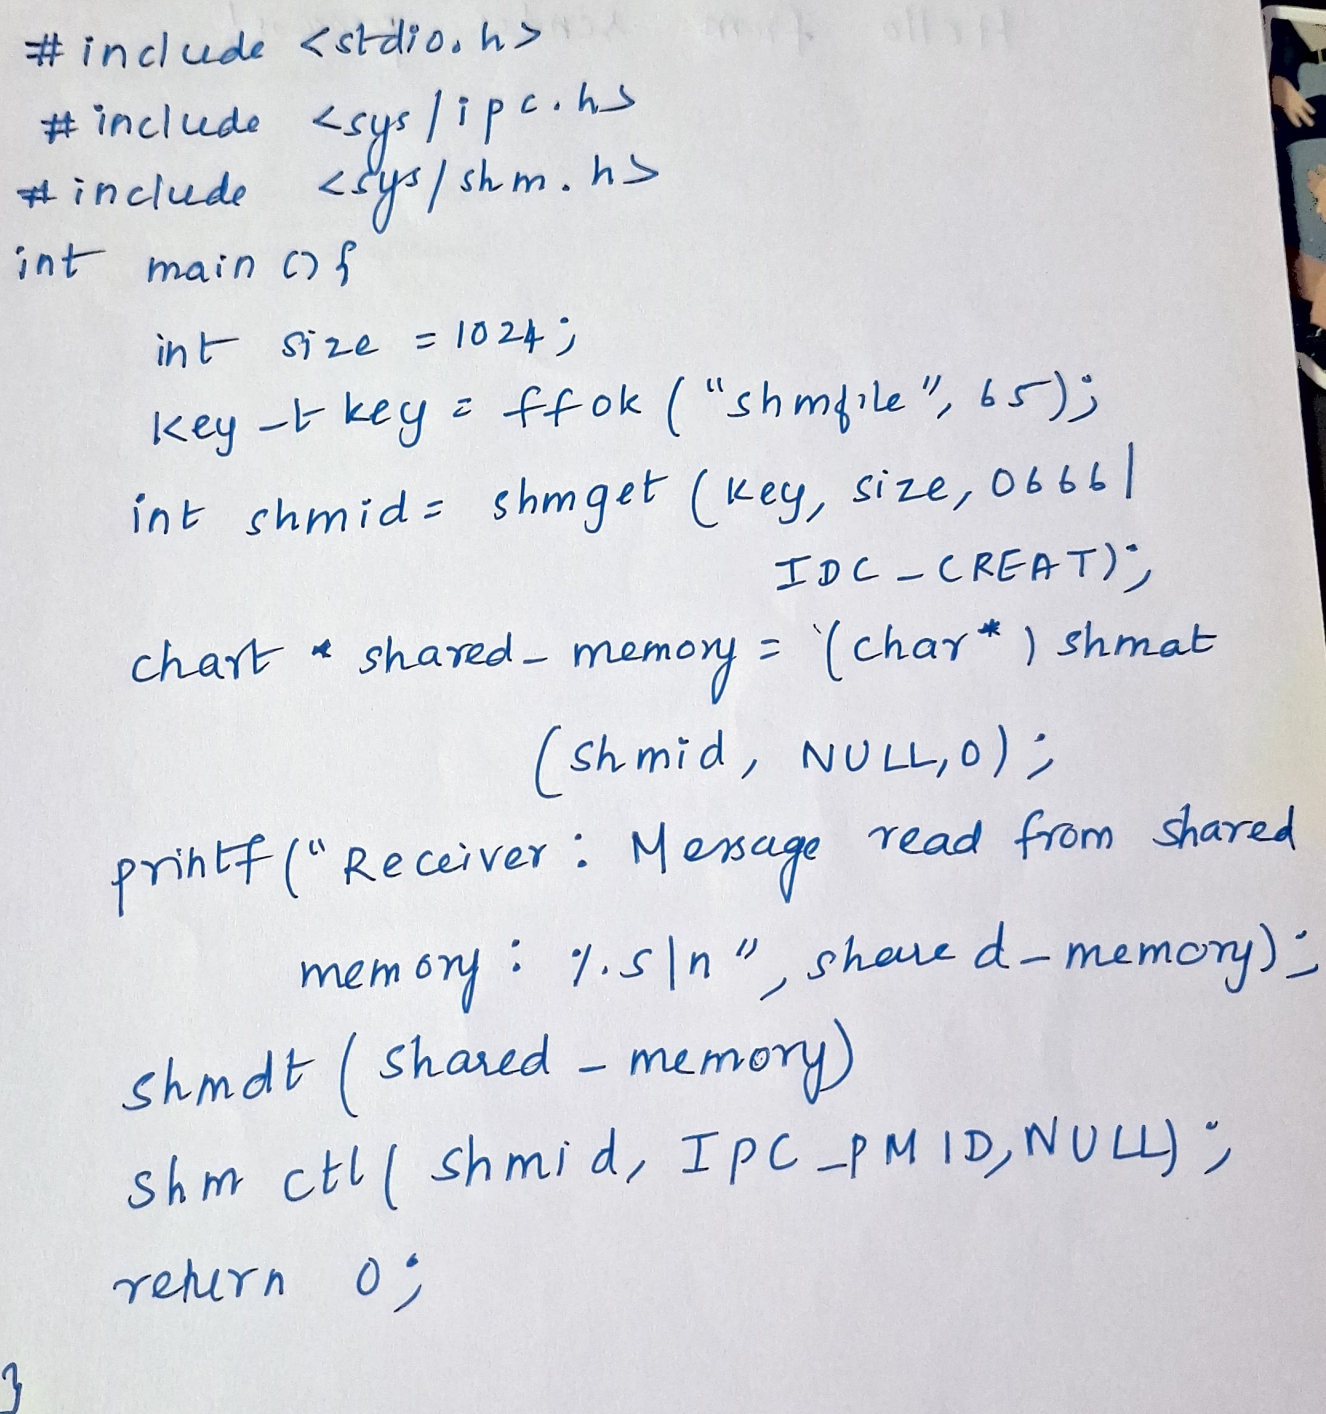 #include <stdio.h>
#include <sys/ipc.h>
#include <sys/shm.h>
int main () {
int size = 1024;
key_t key = ffok ("shmfile", 65);
int shmid = shmget (key, size, 0666|
IDC_CREAT);
chart * shared_memory = (char*) shmat
(shmid, NULL, 0);
printf ("Receiver: Message read from shared
memory: %s\n", shared_memory);
shmdt (shared_memory)
shm ctl( shmid, IPC_PMID, NULL);
return 0;
}